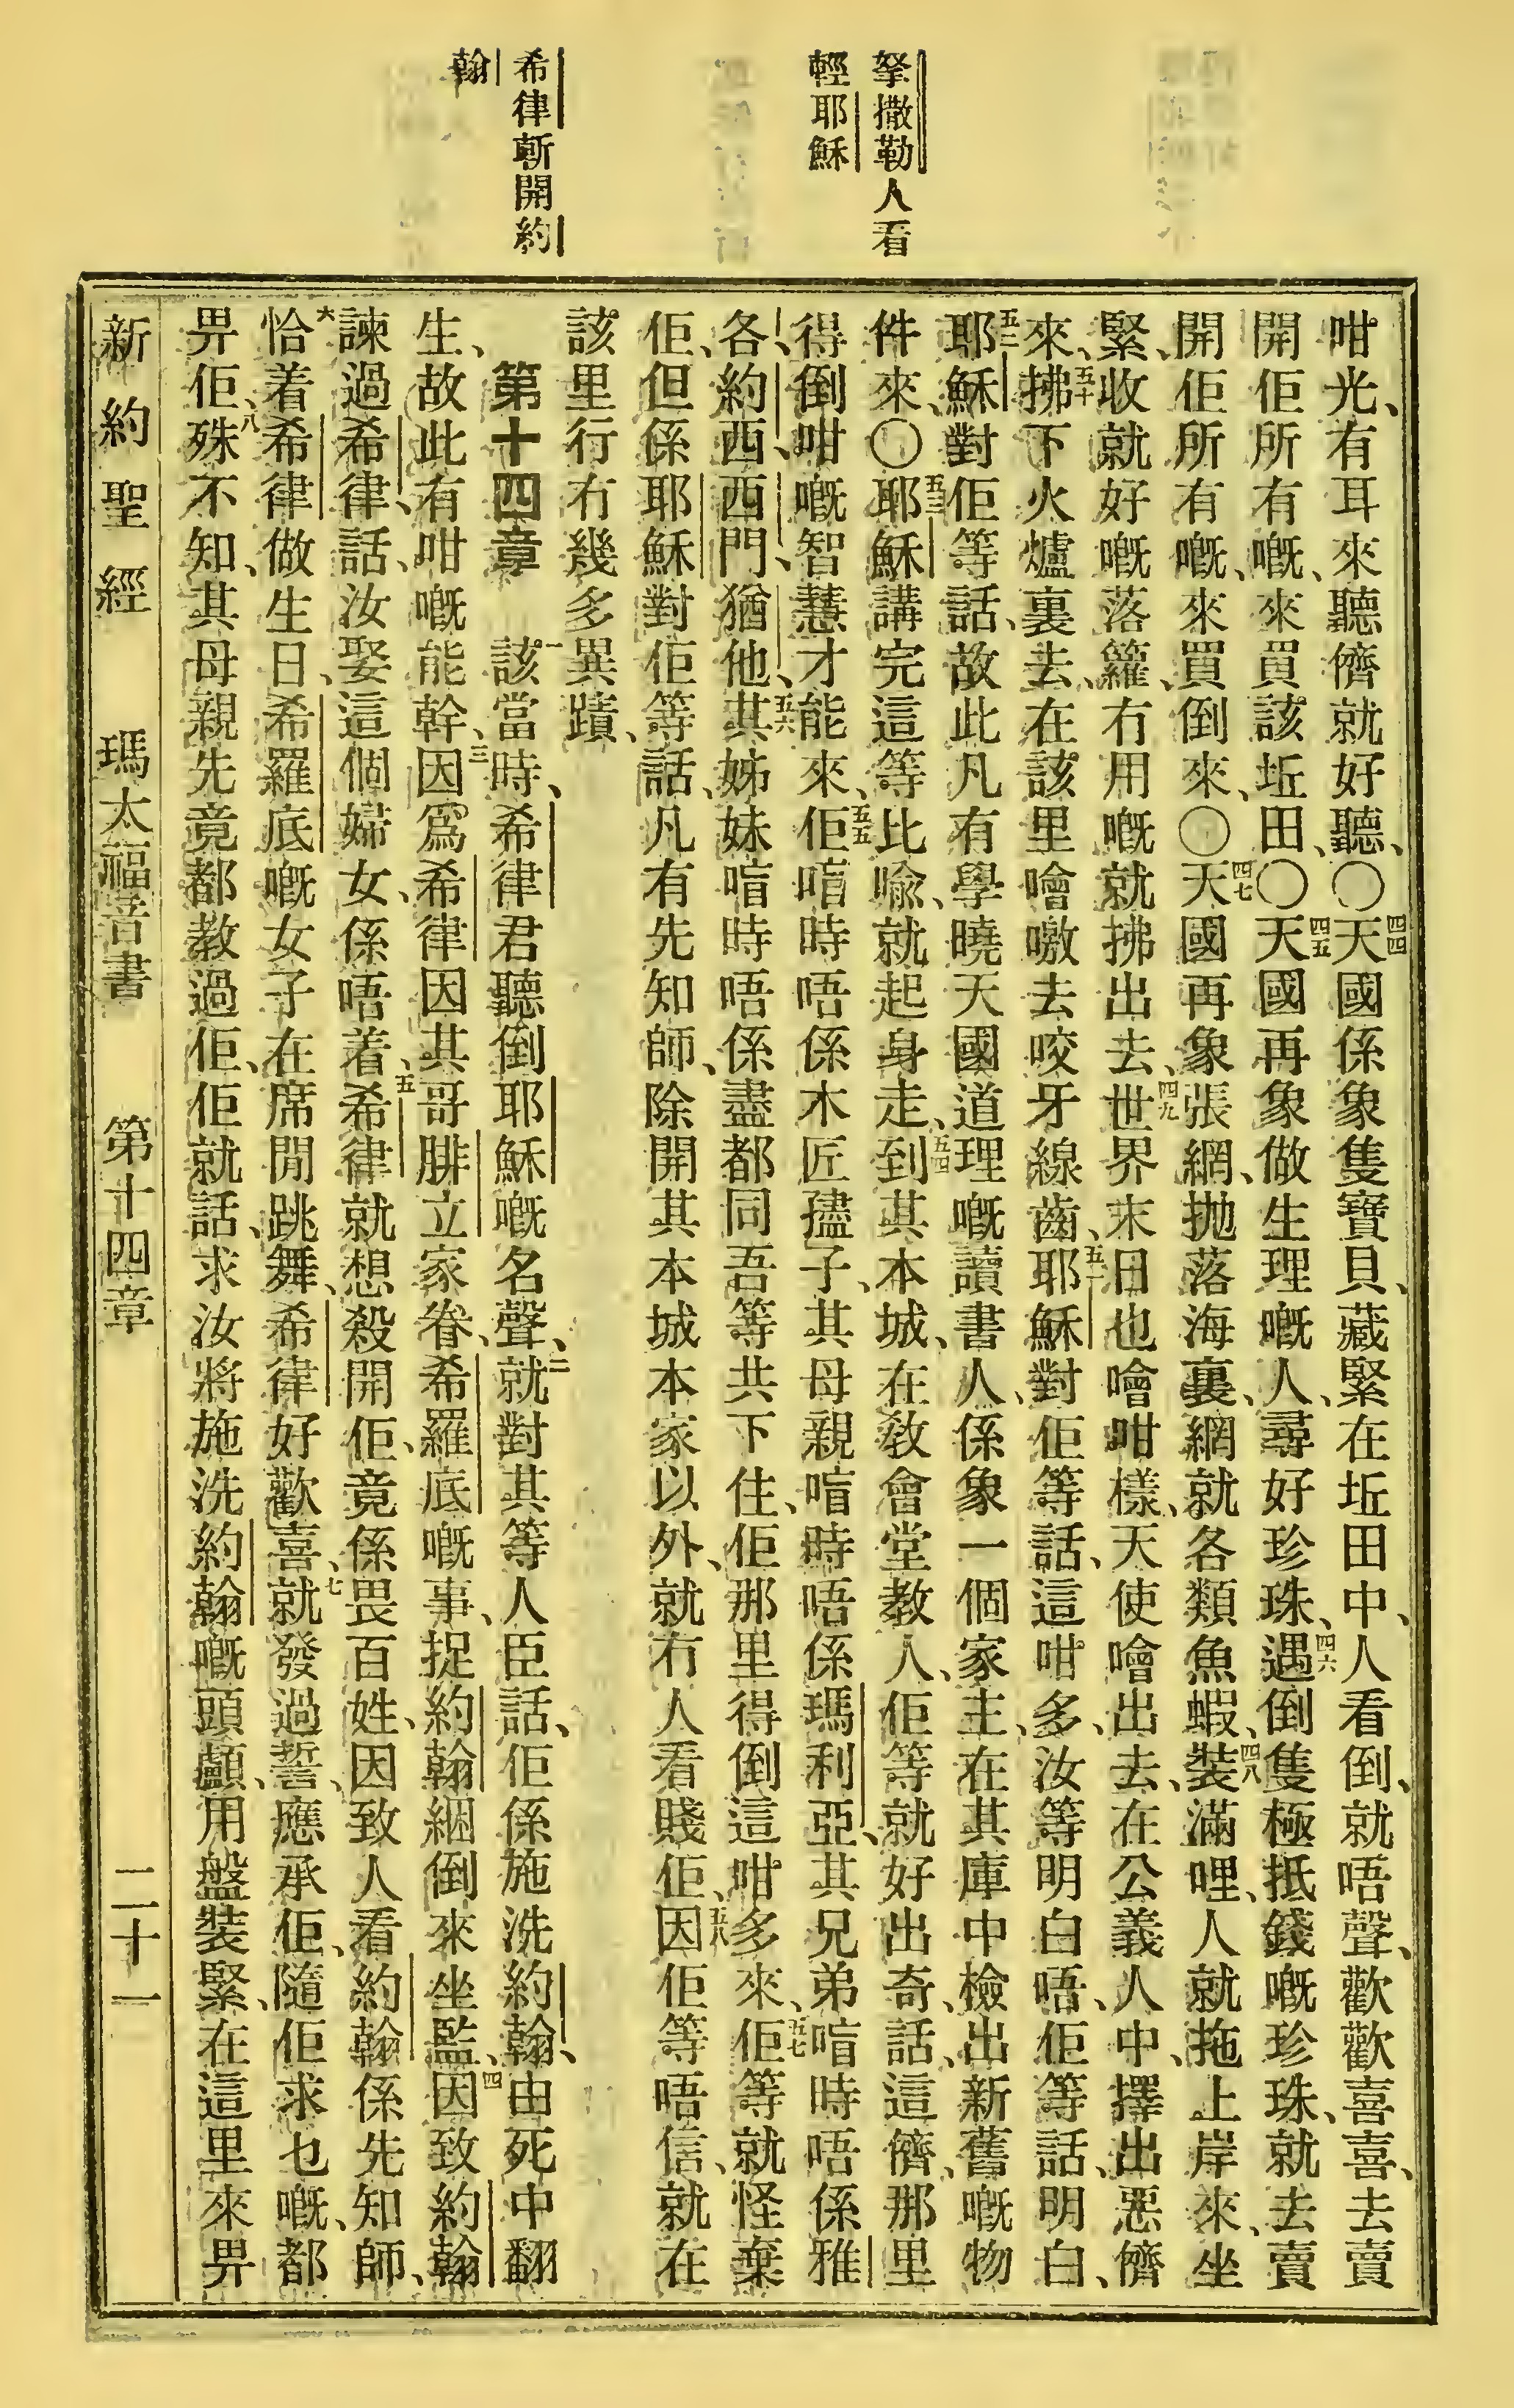 拏撒勒人看
輕耶穌
希律斬開約
翰
咁光、有耳來聽儕就好聽、〇四四天國係象隻寶貝、藏緊在坵田中、人看倒、就唔聲、歡歡喜喜、去賣
開佢所有嘅、來買該坵田、〇四五天國再象做生理嘅人、尋好珍珠、四六遇倒隻極抵錢嘅珍珠、就去賣
開佢所有嘅、來買倒來、〇四七天國再象張網、拋落海裏、網就各類魚蝦、四八裝滿哩、人就拖上岸來、坐
緊、收就好嘅落籮、冇用嘅就拂出去、四九世界末日也噲咁樣、天使噲出去、在公義人中、擇出惡儕
來、五十拂下火爐裏去、在該里噲噭去咬牙線齒、五一耶穌對佢等話、這咁多、汝等明白唔、佢等話、明白、
五二耶穌對佢等話、故此凡有學曉天國道理嘅讀書人、係象一個家主、在其庫中檢出新舊嘅物
件來、〇五三耶穌講完這等比喩、就起身走、五四到其本城、在教會堂教人、佢等就好出奇、話、這儕、那里
得倒咁嘅智慧才能來、五五佢唁時唔係木匠孻子、其母親唁時唔係瑪利亞、其兄弟唁時唔係雅
各、約西、西門、猶他、五六其姊妹唁時唔係盡都同吾等共下住、佢那里得倒這咁多來、五七佢等就怪棄
佢、但係耶穌對佢等話、凡有先知師、除開其本城本家以外、就冇人看賤佢、五八因佢等唔信、就在
該里行冇幾多異蹟、
第十四章　一該當時、希律君聽倒耶穌嘅名聲、二就對其等人臣話、佢係施洗約翰、由死中翻
生、故此有咁嘅能幹、三因爲希律因其哥腓立家眷、希羅底嘅事、捉約翰綑倒來坐監、四因致約翰
諫過希律、話、汝娶這個婦女、係唔着、五希律就想殺開佢、竟係畏百姓、因致人看約翰係先知師、
六恰着希律做生日、希羅底嘅女子在席間跳舞、希律好歡喜、七就發過誓、應承佢、隨佢求乜嘅、都
畀佢、八殊不知、其母親先竟都教過佢、佢就話、求汝將施洗約翰嘅頭顱、用盤裝緊、在這里來畀
新約聖經　瑪太福音書　第十四章　二十一